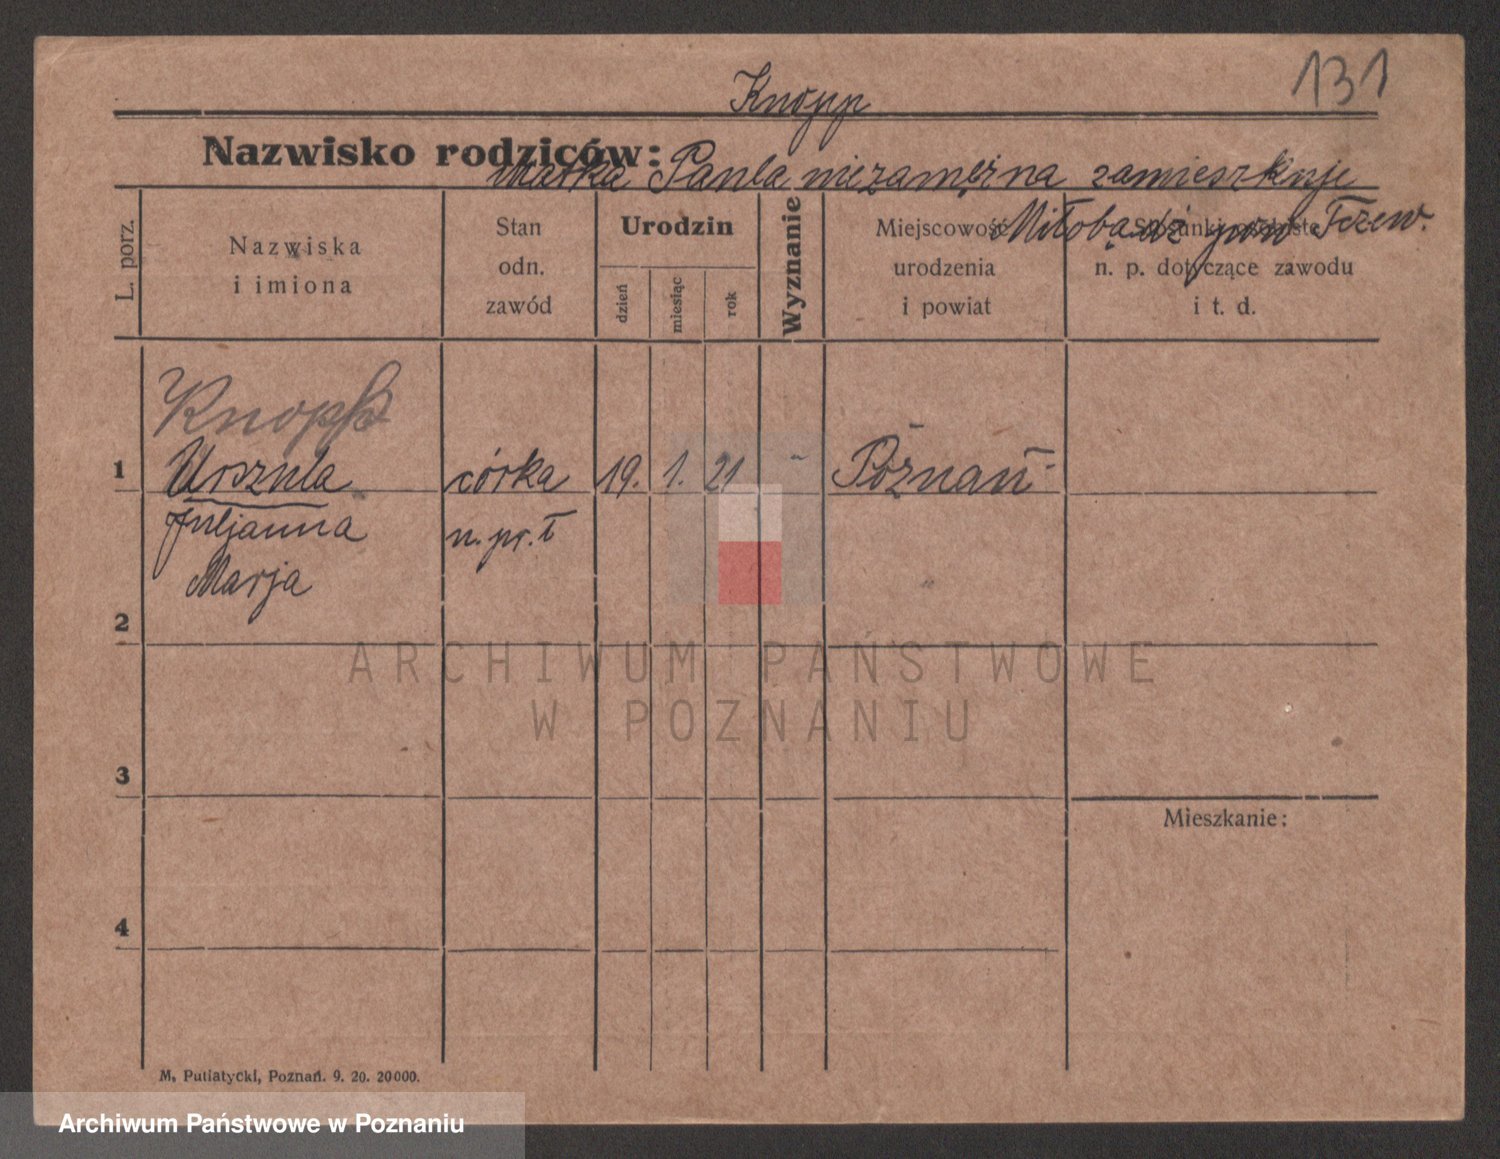 131
Knopp
Nazwisko rodziców:
Matka Paula niezamężna zamieszkuje
Miłobądź pow Tczew.
L. porz.
Nazwiska
i imiona
Stan
odn.
zawód
Urodzin
dzień
miesiąc
rok
Wyznanie
Miejscowość
urodzenia
i powiat
Stosunki osobiste
n. p. dotyczące zawodu
i t. d.
Knopp
1 Urszula córka 19. 1. 21 - Poznań.
Juljanna n. pr. ł
Marja
2
ARCHIWUM PAŃSTWOWE
W POZNANIU
3
Mieszkanie:
4
M. Putiatycki, Poznań. 9. 20. 20000.
Archiwum Państwowe w Poznaniu